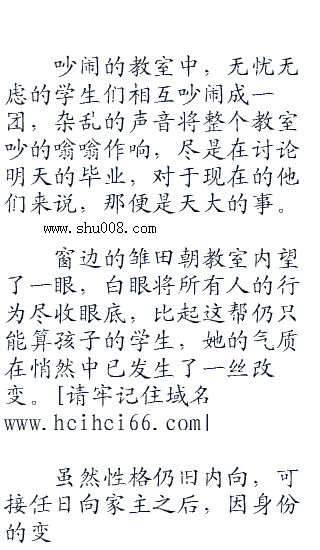 吵闹的教室中，无忧无
虑的学生们相互吵闹成一
团，杂乱的声音将整个教室
吵的嗡嗡作响，尽是在讨论
明天的毕业，对于现在的他
们来说，那便是天大的事。
www.shu008.com
窗边的雏田朝教室内望
了一眼，白眼将所有人的行
为尽收眼底，比起这帮仍只
能算孩子的学生，她的气质
在悄然中已发生了一丝改
变。[请牢记住域名
www.hcihci66.com|
虽然性格仍旧内向，可
接任日向家主之后，因身份
的变